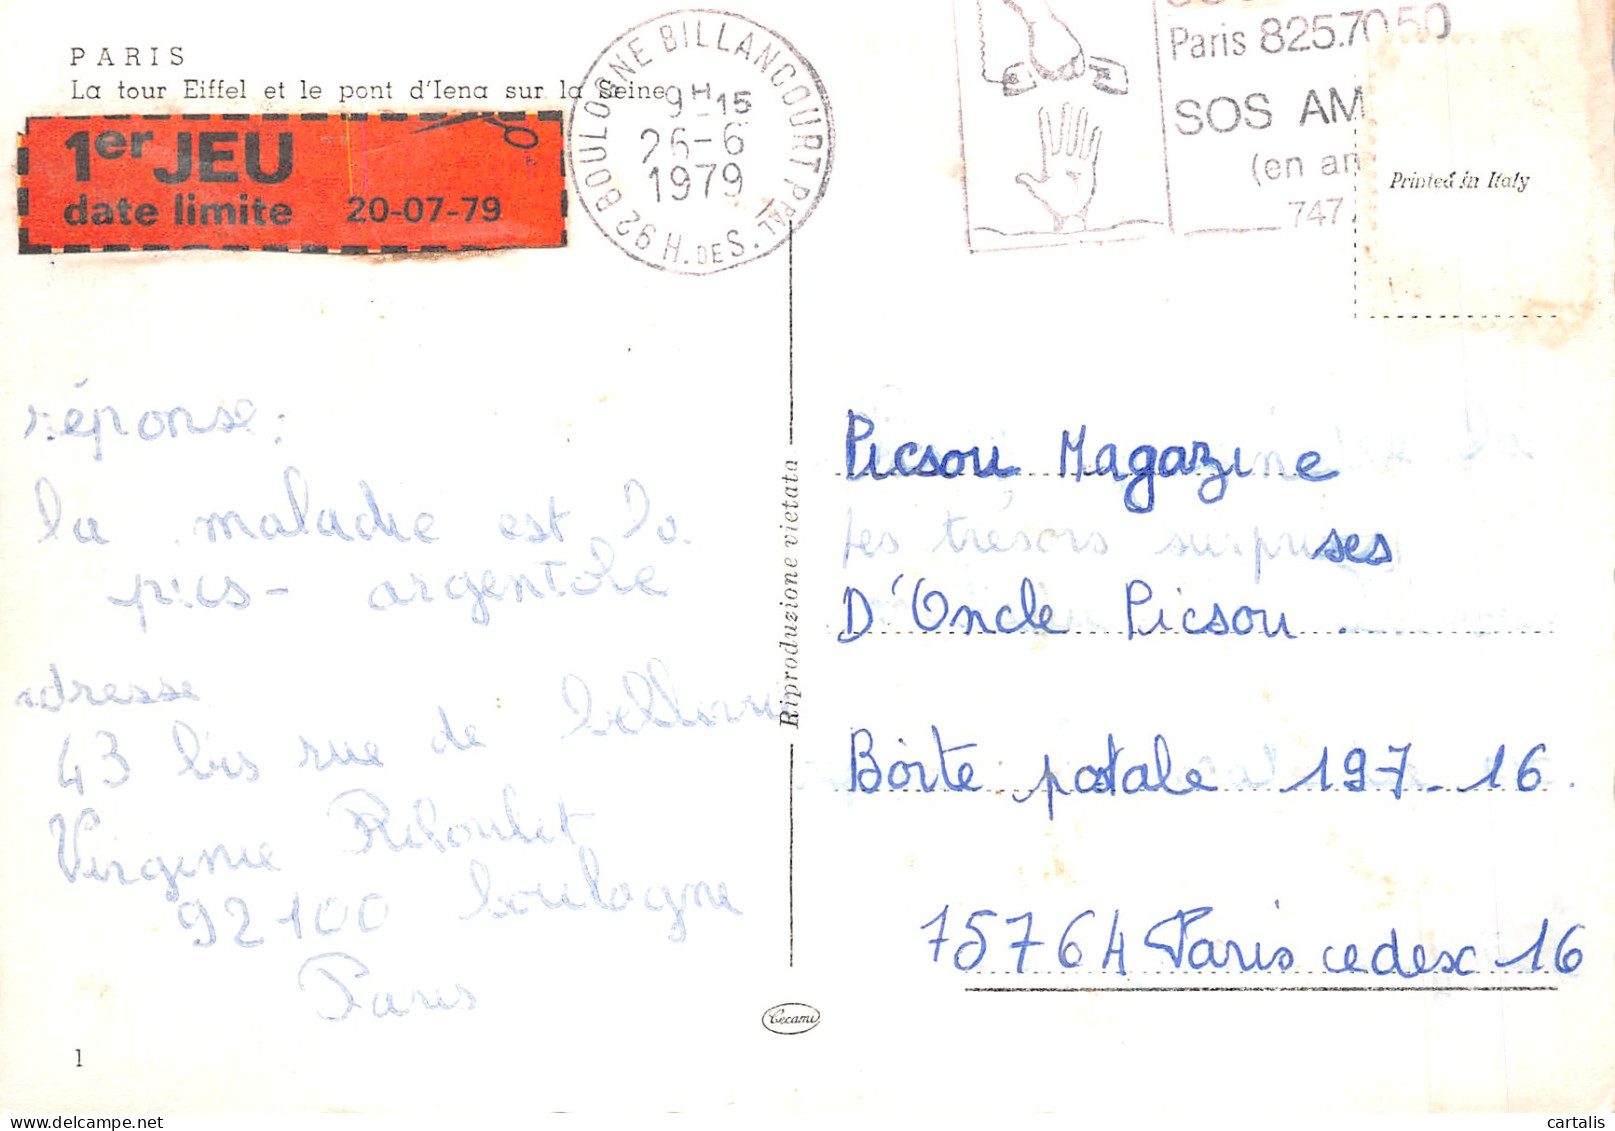 PARIS
La tour Eiffel et le pont d'Iena sur la Seine
1er JEU
date limite 20-07-79
92 BOULOGNE BILLANCOURT PPAL
H. DE S.
9H-15
26-6
1979
Paris 825.70.50
SOS AM
(en an
747
Printed in Italy
réponse:
la maladie est la
pics- argentoïte
adresse
43 bis rue de bellevue
Virginie Riboulet
92100 boulogne
Paris
1
Riproduzione vietata
Cecami
Picsou Magazine
les trésors surprises
D'Oncle Picsou.
Boîte postale 197-16.
75764 Paris cedex 16
cartalis